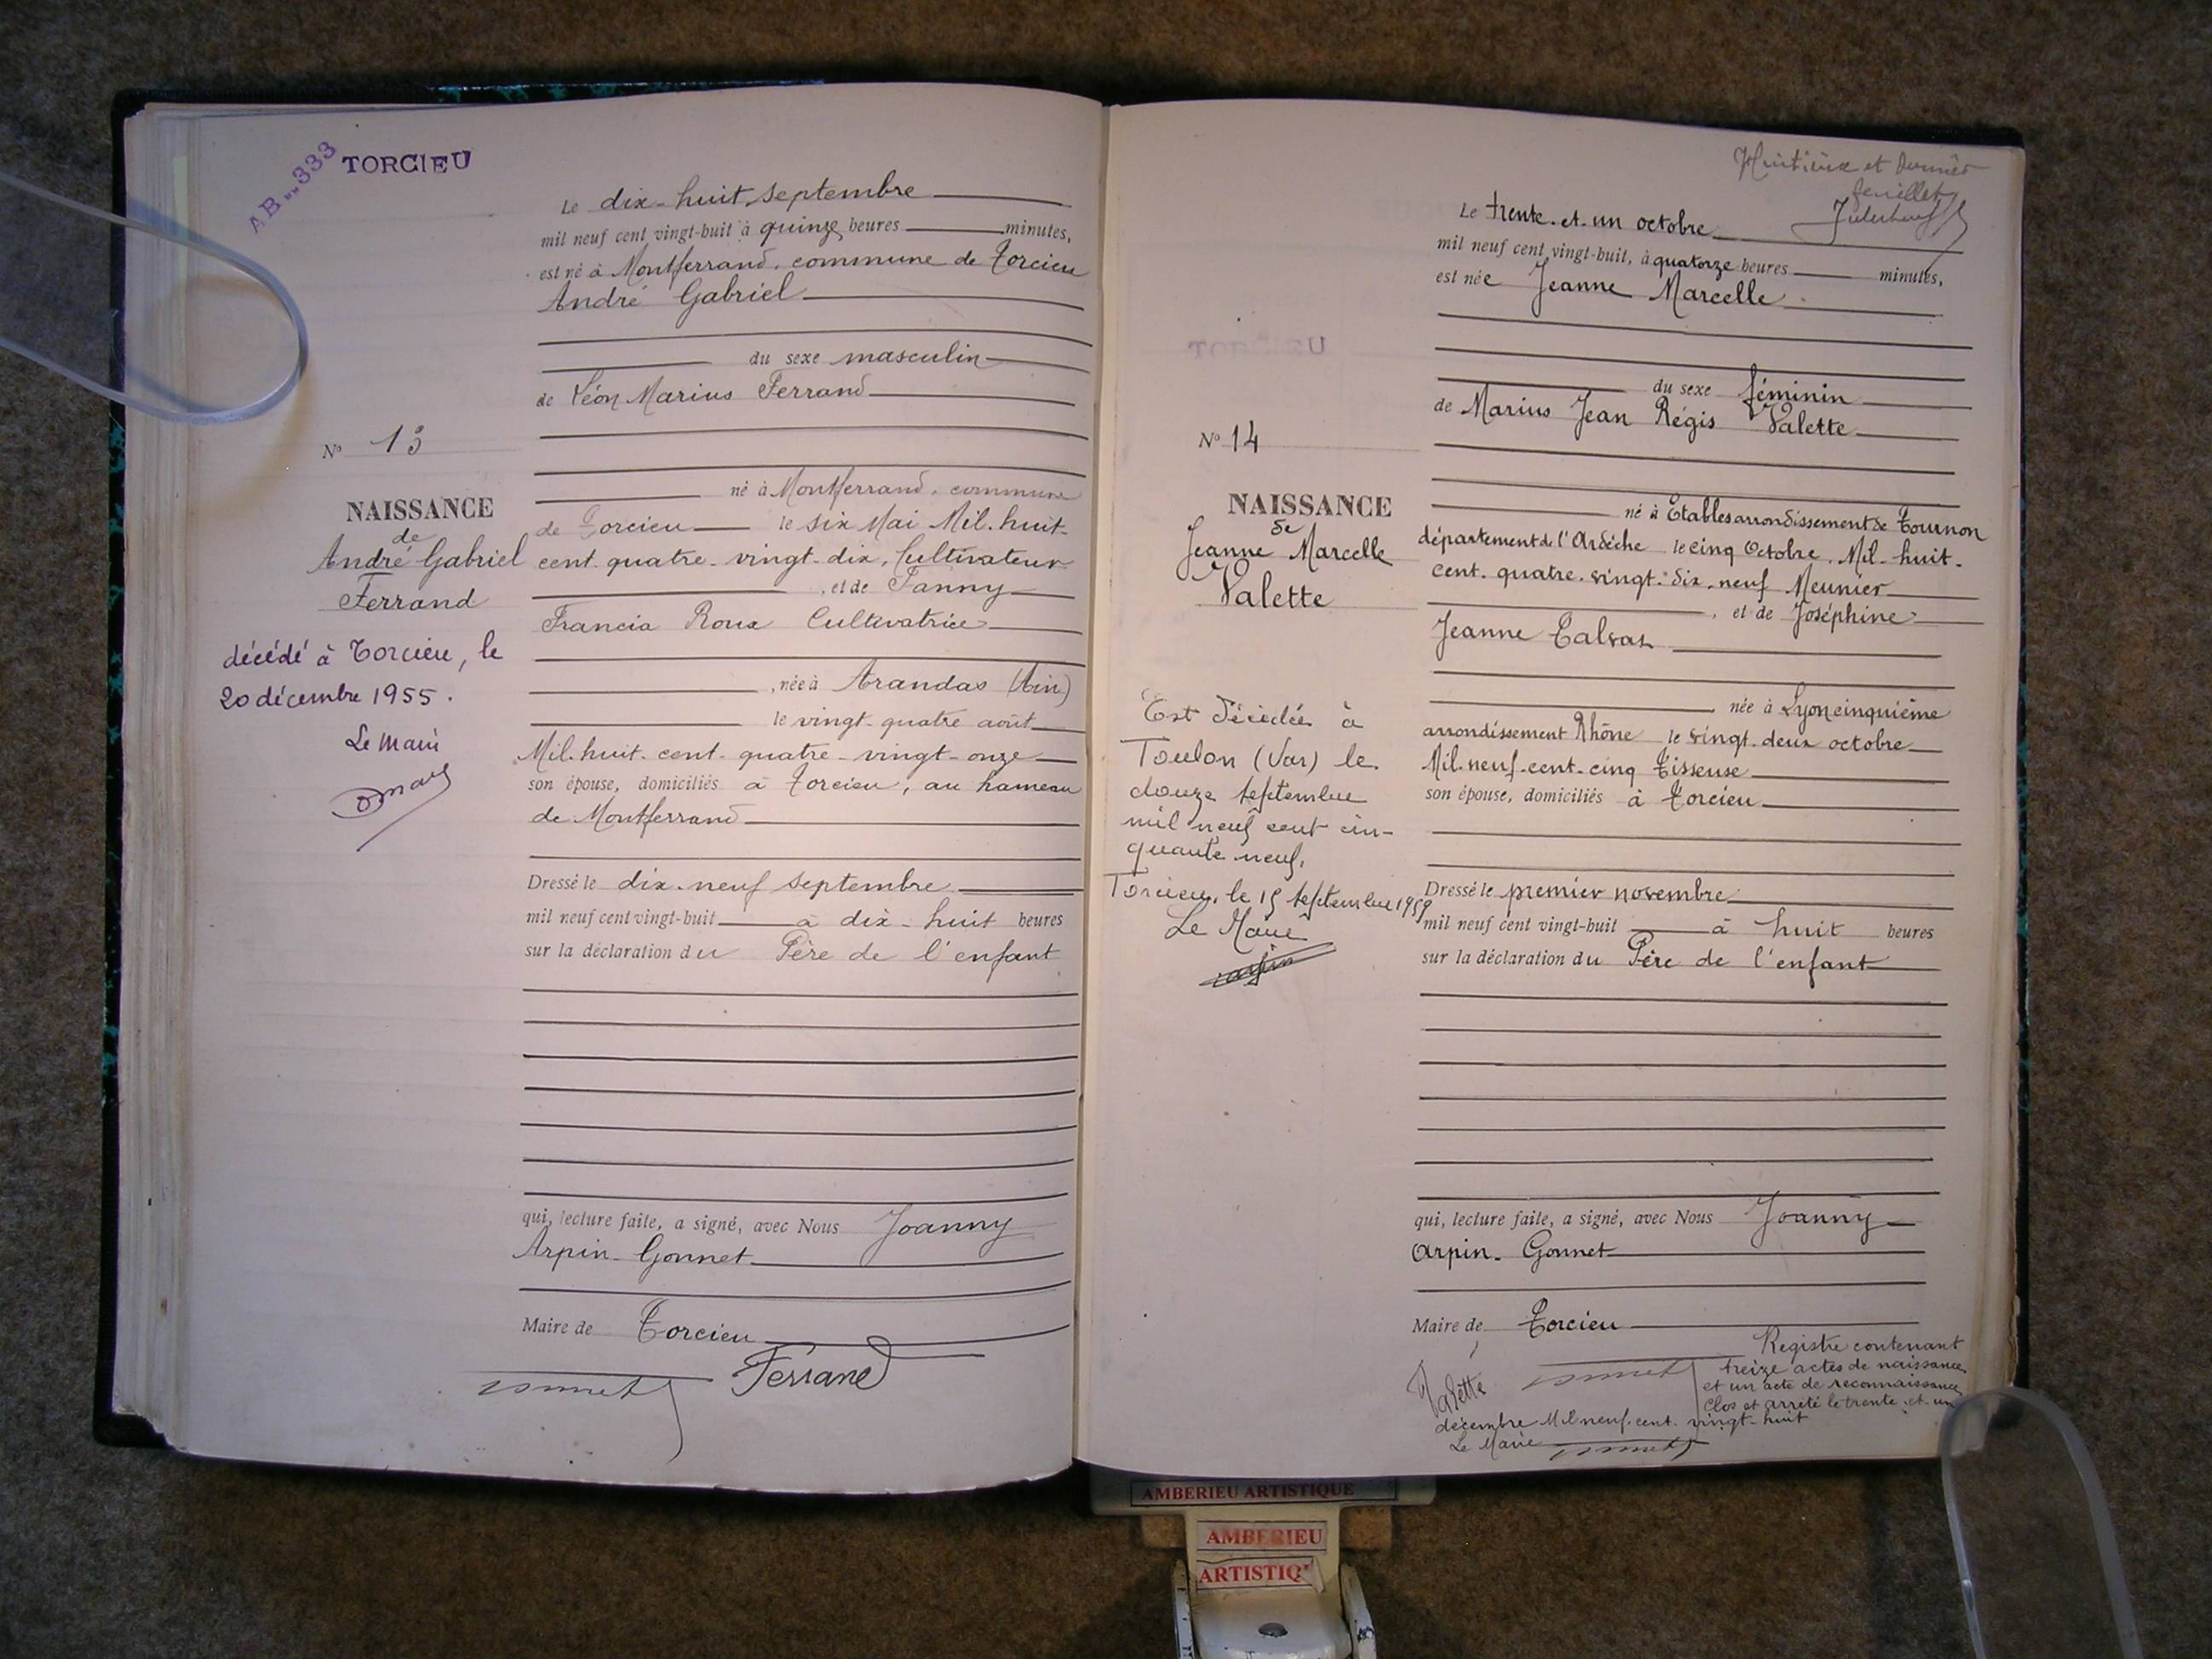 AB 333
TORCIEU
Le dix-huit septembre
mil neuf cent vingt-huit à quinze heures minutes,
est né à Montferrand, commune de Torcieu
André Gabriel
du sexe masculin
de Léon Marius Ferrand
N° 13
né à Montferrand, commune
NAISSANCE
de
André Gabriel
Ferrand
de Torcieu le six Mai Mil. huit-
cent. quatre-vingt-dix, Cultivateur
, et de Fanny
Francia Roux Cultivatrice
décédé à Torcieu, le
20 décembre 1955.
Le Maire
, née à Arandas (Ain)
le vingt-quatre août
Mil. huit. cent. quatre-vingt-onze
son épouse, domiciliés à Torcieu, au hameau
de Montferrand
Dressé le dix-neuf septembre
mil neuf cent vingt-huit à dix-huit heures
sur la déclaration du Père de l'enfant
qui, lecture faite, a signé, avec Nous Joanny
Arpin-Gonnet
Maire de Torcieu
Ferrand
Huitième et dernier
feuillet
Le trente-et-un octobre
mil neuf cent vingt-huit, à quatorze heures minutes,
est née Jeanne Marcelle
du sexe féminin
de Marius Jean Régis Valette
N° 14
NAISSANCE
de
Jeanne Marcelle
Valette
né à Etables arrondissement de Tournon
département de l'Ardèche le cinq Octobre. Mil-huit-
cent. quatre. vingt. dix. neuf Meunier
, et de Joséphine
Jeanne
Est décédée à
Toulon (Var) le
douze septembre
mil neuf cent cin-
quante neuf.
Torcieu, le 15 septembre 1959
Le Maire
née à Lyon cinquième
arrondissement Rhône le vingt-deux octobre
Mil-neuf-cent-cinq Tisseuse
son épouse, domiciliés à Torcieu
Dressé le premier novembre
mil neuf cent vingt-huit à huit heures
sur la déclaration du Père de l'enfant
qui, lecture faite, a signé, avec Nous Joanny
Arpin-Gonnet
Maire de Torcieu
Valette
Registre contenant
treize actes de naissance
et un acte de reconnaissance
clos et arrêté le trente-et-un
décembre Mil neuf. cent. vingt-huit
Le Maire
AMBERIEU ARTISTIQUE
AMBERIEU
ARTISTIQ